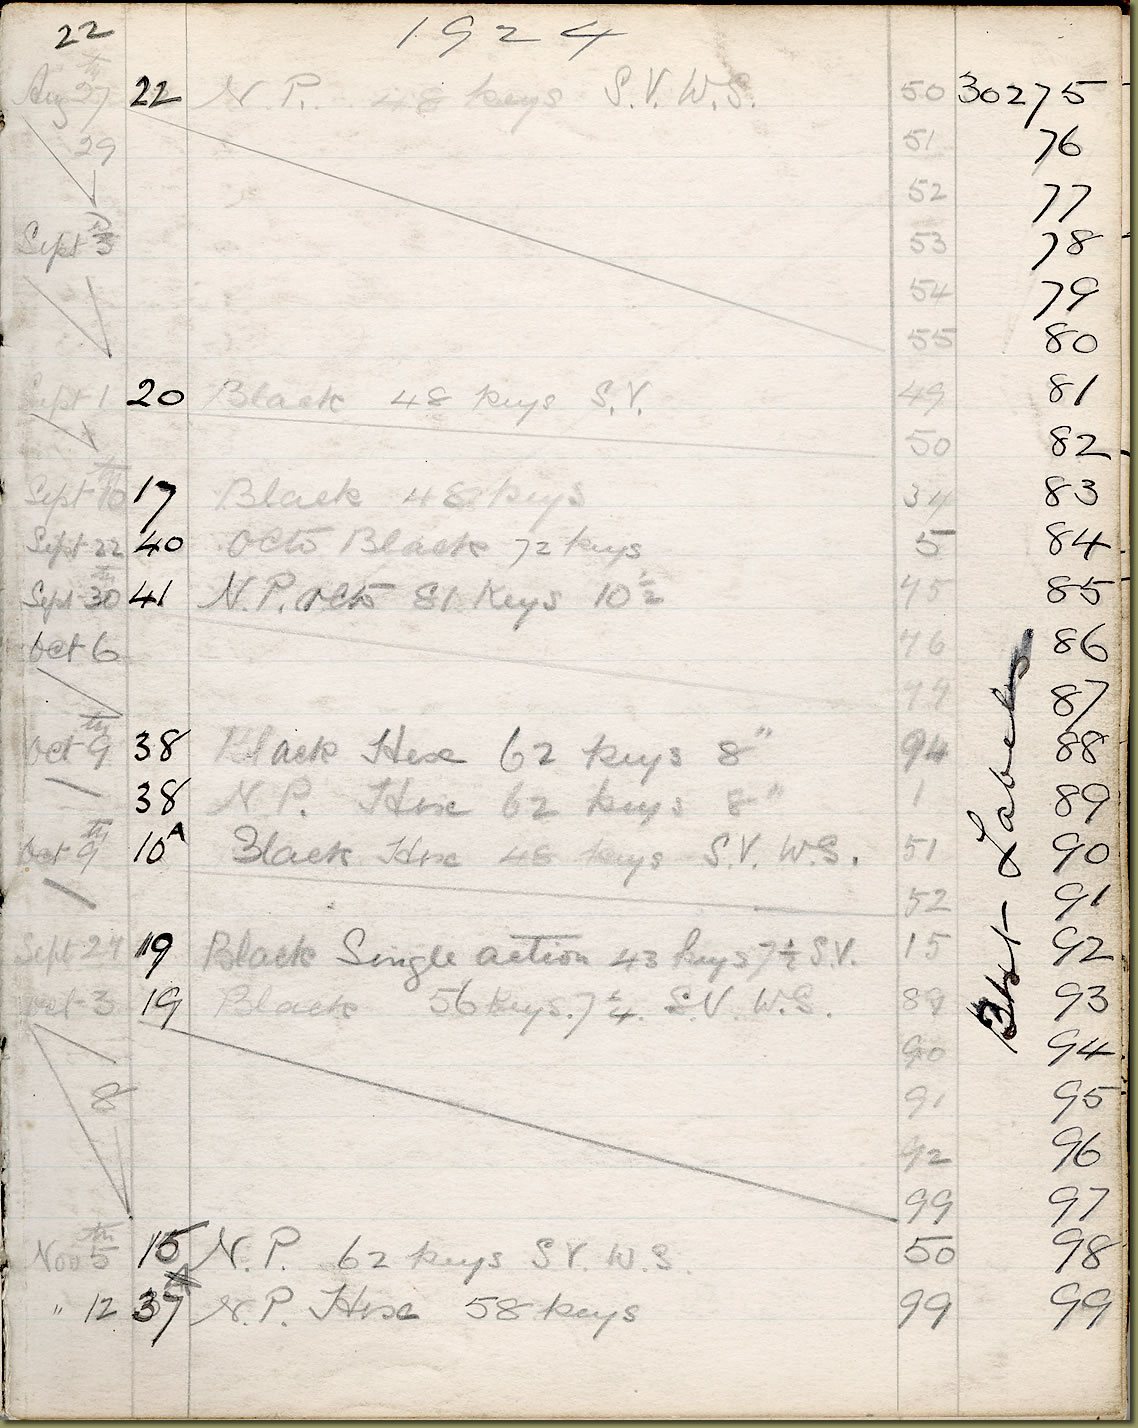 22 1924
Aug 27th 22 N.P. 48 keys S.V. W.S. 50 30275
29 51 76
52 77
Sept 3rd 53 78
54 79
55 80
Sept 1 20 Black 48 keys S.V. 49 81
50 82
Sept 10th 17 Black 48 keys 34 83
Sept 22 40 octo Black 72 keys 5 84
Sept 30th 41 N.P. octo 81 Keys 10½ 75 85
Oct 6 76 86
77 87
Oct 9th 38 Black Hexe 62 keys 8" 94 88
38 N.P. Hexe 62 keys 8" 1 89
Oct 9th 10A Black Hexe 48 keys S.V. W.S. 51 90
52 91
Sept 27 19 Black Single action 43 keys 7½ S.V. 15 92
Oct 3 19 Black 56 keys. 7¼ S.V. W.S. 89 93
90 94
8 91 95
92 96
99 97
Nov 5th 15 N.P. 62 keys S.V. W.S. 50 98
" 12 37 N.P. Hexe 58 keys 99 99
Best Labels